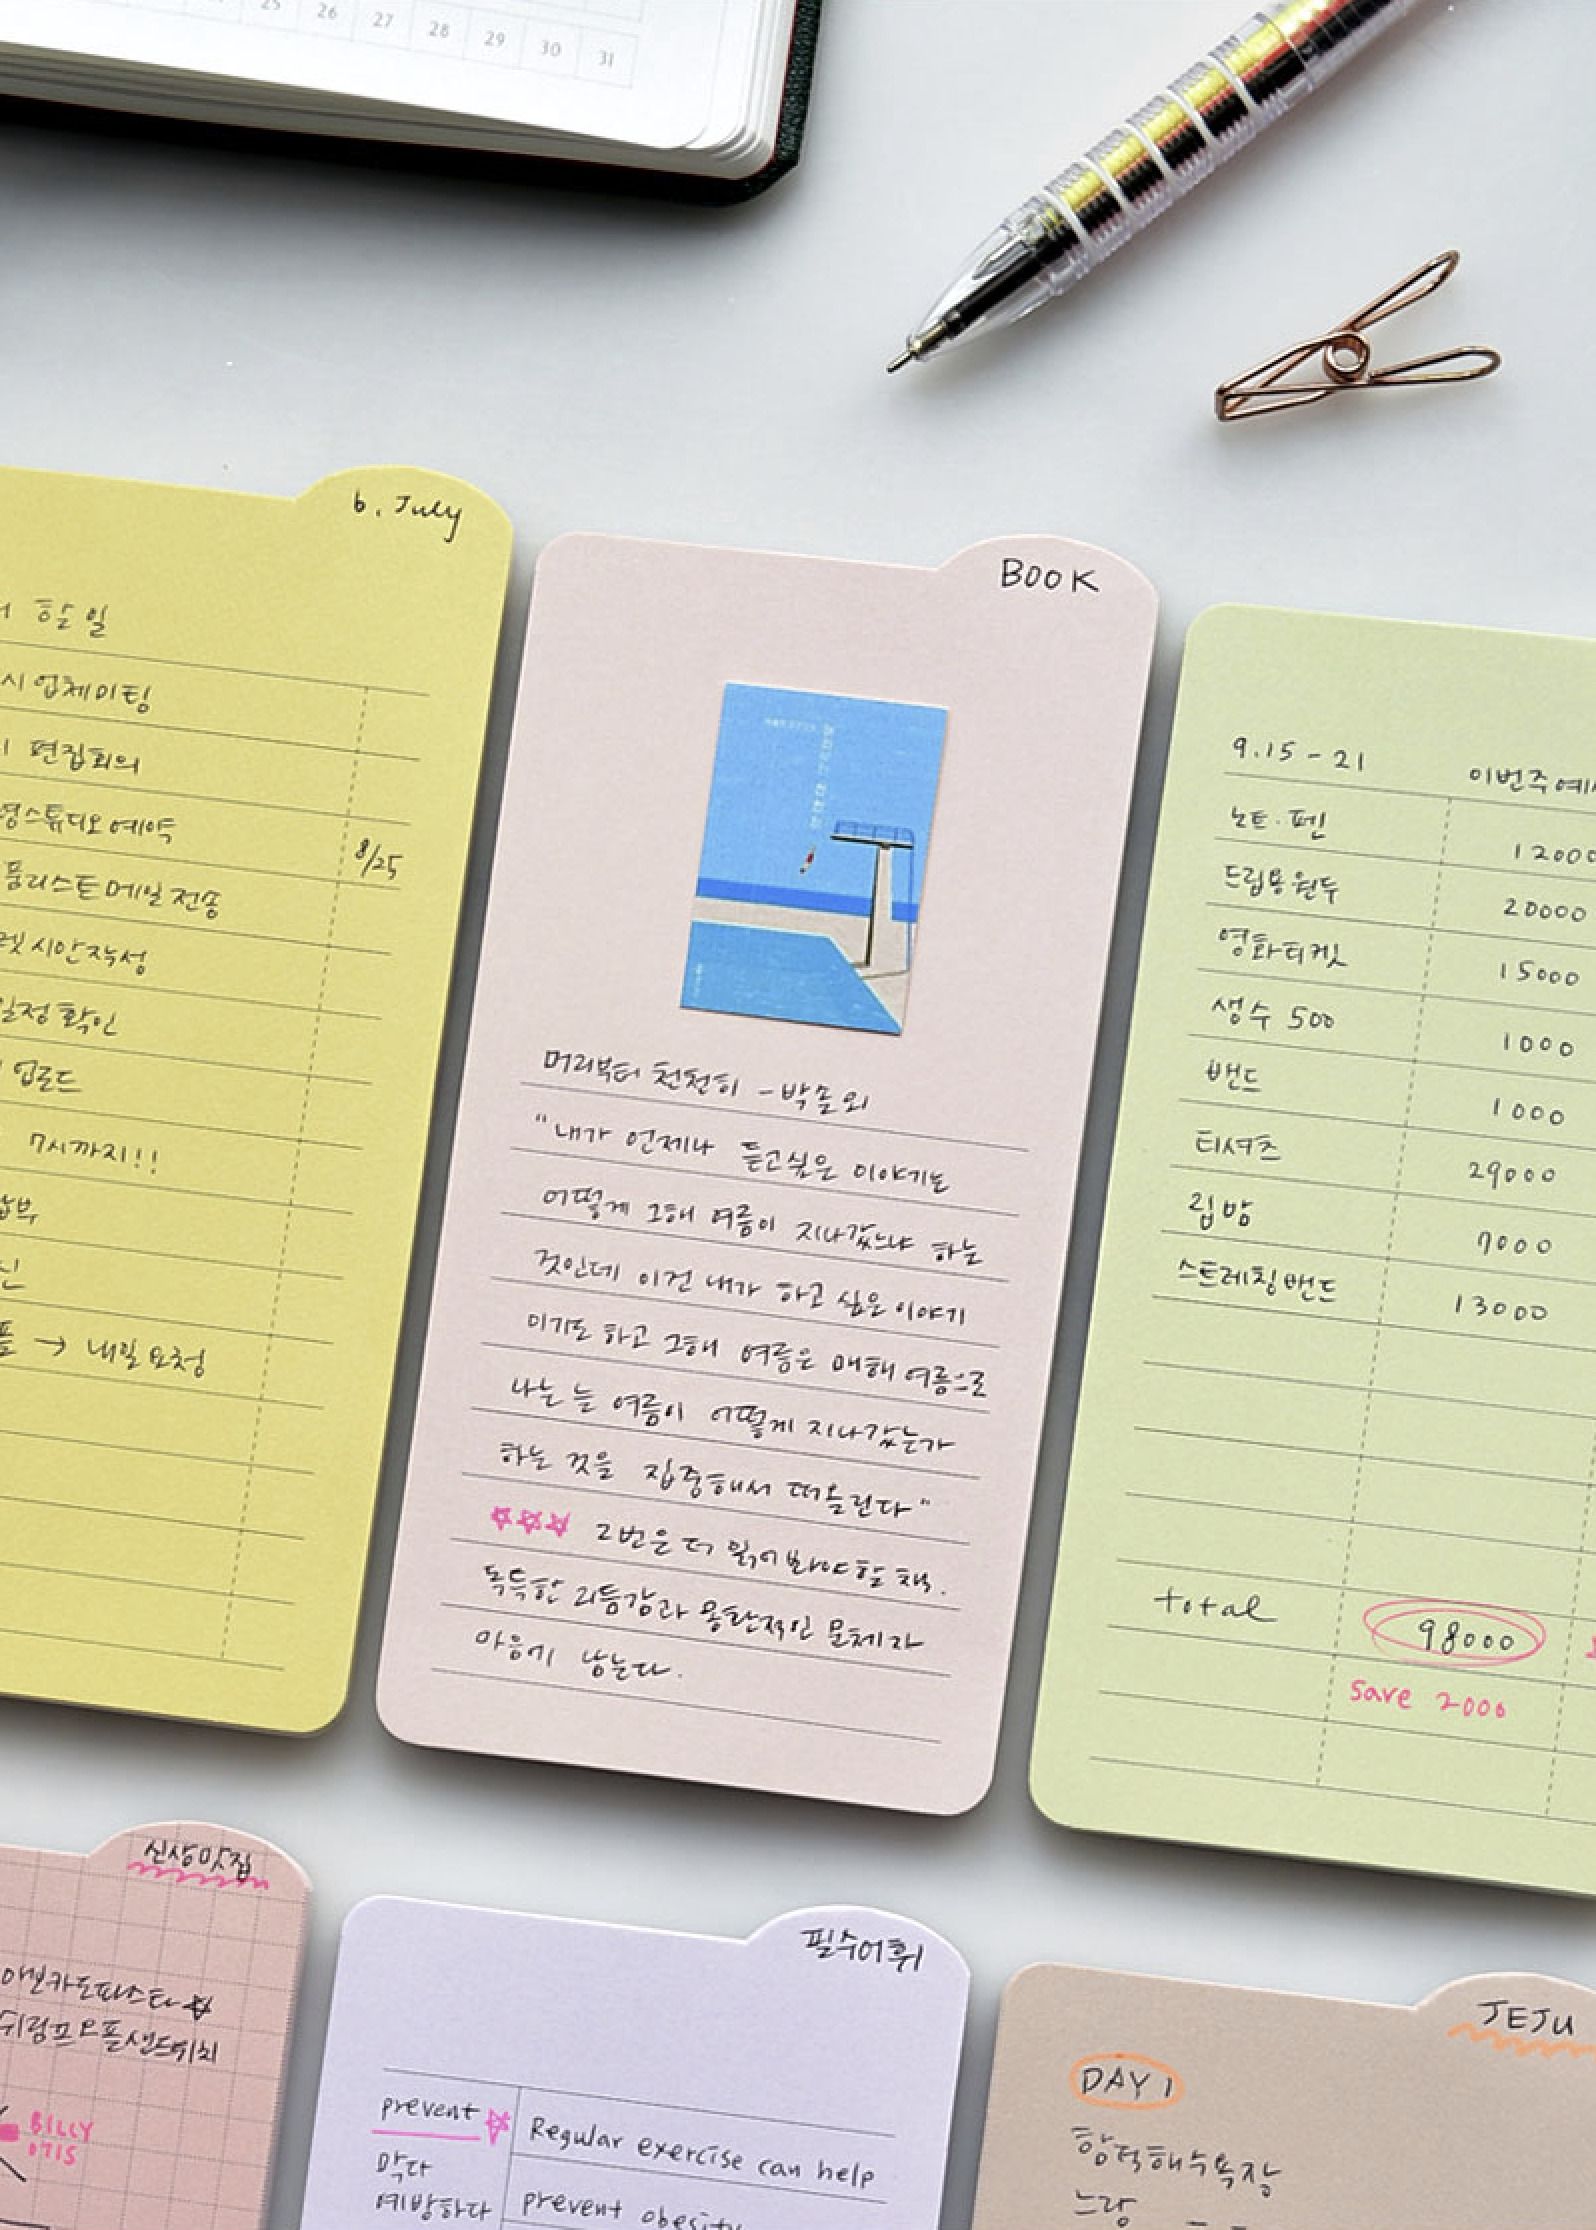 25 26 27 28 29 30 31
6. July
할 일
시 업체미팅
편집회의
스튜디오 예약
8/25
품리스트 메일 전송
시안작성
일정 확인
업로드
7시까지!!
납부
→ 내일 요청
BOOK
머리부터 천천히 - 박솔뫼
"내가 언제나 듣고싶은 이야기는
어떻게 그해 여름이 지나갔느냐 하는
것인데 이건 내가 하고 싶은 이야기
이기도 하고 그해 여름은 매해 여름으로
나는 늘 여름이 어떻게 지나갔는가
하는 것을 집중해서 떠올린다"
☆☆☆ 2번은 더 읽어봐야할 책.
독특한 리듬감과 몽환적인 문체가
마음에 남는다.
9.15 - 21 이번주 예
노트·펜 12000
드립용원두 20000
영화티켓 15000
생수 500 1000
밴드 1000
티셔츠 29000
립밤 7000
스트레칭밴드 13000
total 98000
save 2000
신상맛집
아보카도파스타☆
쉬림프오픈샌드위치
BILLY
OTIS
필수어휘
prevent ☆ Regular exercise can help
막다
예방하다 prevent obesity
JEJU
DAY 1
함덕해수욕장
느랑